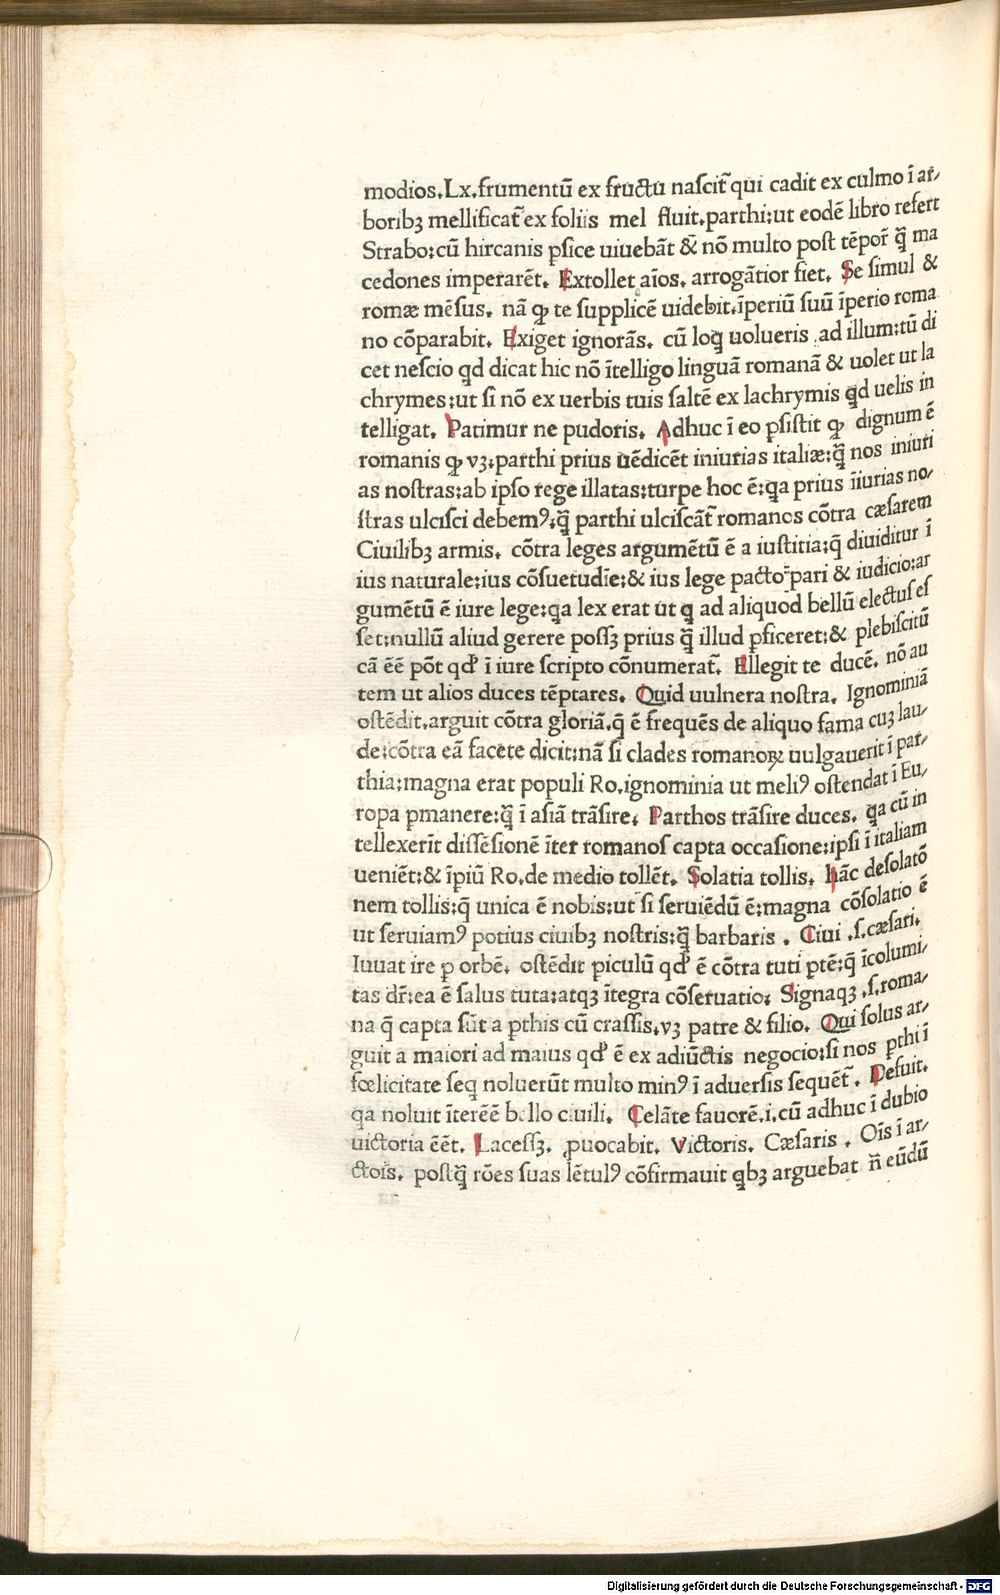 modios.Lx.frumentū ex fructu naſcit̄ qui cadit ex culmo ī ar/
boribꝫ mellificat̄ ex foliis mel fluit.parthi:ut eodē libro refert
Strabo:cū hircanis ꝑſice uiuebāt & nō multo poſt tēpor̄ q̄̃ ma
cedones imperarēt. Extollet aīos. arrogātior fiet. Se ſimul &
romæ mēſus. nā ꝙ te ſupplicē uidebit.īperiū ſuū īperio roma
no cōparabit. Exiget ignorās. cū loꝗ uolueris ad illum:tū di
cet neſcio qd dicat hic nō ītelligo linguā romanā & uolet ut la
chrymes:ut ſi nō ex uerbis tuis ſaltē ex lachrymis ꝗd uelis in
telligat. Patimur ne pudoris. Adhuc ī eo ꝑſiſtit ꝙ dignum ē
romanis ꝙ vꝫ:parthi prius uēdicēt iniurias italiæ:q̄̃ nos iniuri
as noſtras:ab ipſo rege illatas:turpe hoc ē:ꝗa prius īiurias no/
ſtras ulciſci debemꝰ:q̄̃ parthi ulciſcāt̄ romanos cōtra cæſarem
Ciuilibꝫ armis. cōtra leges argumētū ē a iuſtitia:q̄ diuiditur ī
ius naturale:ius cōſuetudīe:& ius lege pacto pari & iudicio:ar
gumētū ē iure lege:ꝗa lex erat ut ꝗ ad aliquod bellū electuſ eſ
ſet:nullū aliud gerere poſſꝫ prius q̄̃ illud ꝑficeret:& plebiſcitū
cā ēē pōt qđ ī iure ſcripto cōnumerat̄. Ellegit te ducē. nō au
tem ut alios duces tēptares. Quid uulnera noſtra. Ignominiā
oſtēdit.arguit cōtra gloriā.q̄ ē frequēs de aliquo fama cuꝫ lau/
de:cōtra eā facete dicit:nā ſi clades romanoꝝ uulgauerit ī par/
thia:magna erat populi Ro.ignominia ut meliꝰ oſtendat ī Eu/
ropa ꝑmanere:q̄̃ ī aſiā trāſire. Parthos trāſire duces. ꝗa cū in
tellexerīt diſſēſionē īter romanoſ capta occaſione:ipſi ī italiam
ueniēt:& īpiū Ro.de medio tollēt. Solatia tollis. hāc deſolatō
nem tollis:q̄ unica ē nobis:ut ſi ſeruiēdū ē:magna cōſolatio ē
ut ſeruiamꝰ potius ciuibꝫ noſtris:q̄̃ barbaris . Ciui .ſ.cæſari.
Iuuat ire ꝑ orbē. oſtēdit piculū qđ ē cōtra tuti ptē:q̄ īcolumi/
tas dr̄:ea ē ſalus tuta:atqꝫ ītegra cōſeruatio: Signaqꝫ .ſ.roma/
na q̄ capta ſūt a ꝑthis cū craſſis.vꝫ patre & filio. Qui ſolus ar/
guit a maiori ad maius qđ ē ex adiūctis negocio:ſi nos ꝑthi ī
fœlicitate ſeꝗ noluerūt multo minꝰ ī aduerſis ſequēt̄. Defuit.
ꝗa noluit ītereē bello ciuili. Celāte fauorē.i.cū adhuc ī dubio
uictoria ēēt. Laceſſꝫ. ꝓuocabit. Victoris. Cæſaris . Oīs ī ar/
ctois. poſtq̄̃ rōes ſuas lētulꝰ cōfirmauit ꝗbꝫ arguebat n̄ eūdū